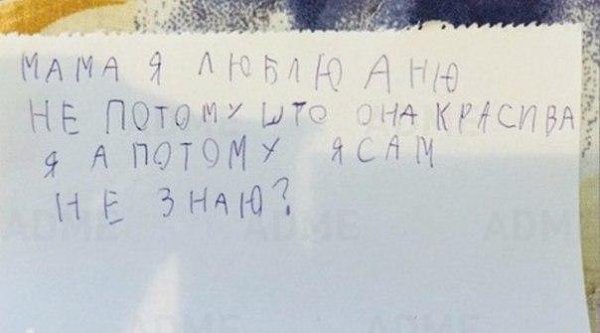 МАМА Я ЛЮБЛЮ АНЮ
НЕ ПОТОМУ ШТО ОНА КРАСИВА
Я А ПОТОМУ ЯСАМ
НЕ ЗНАЮ?
ADME ADME ADME